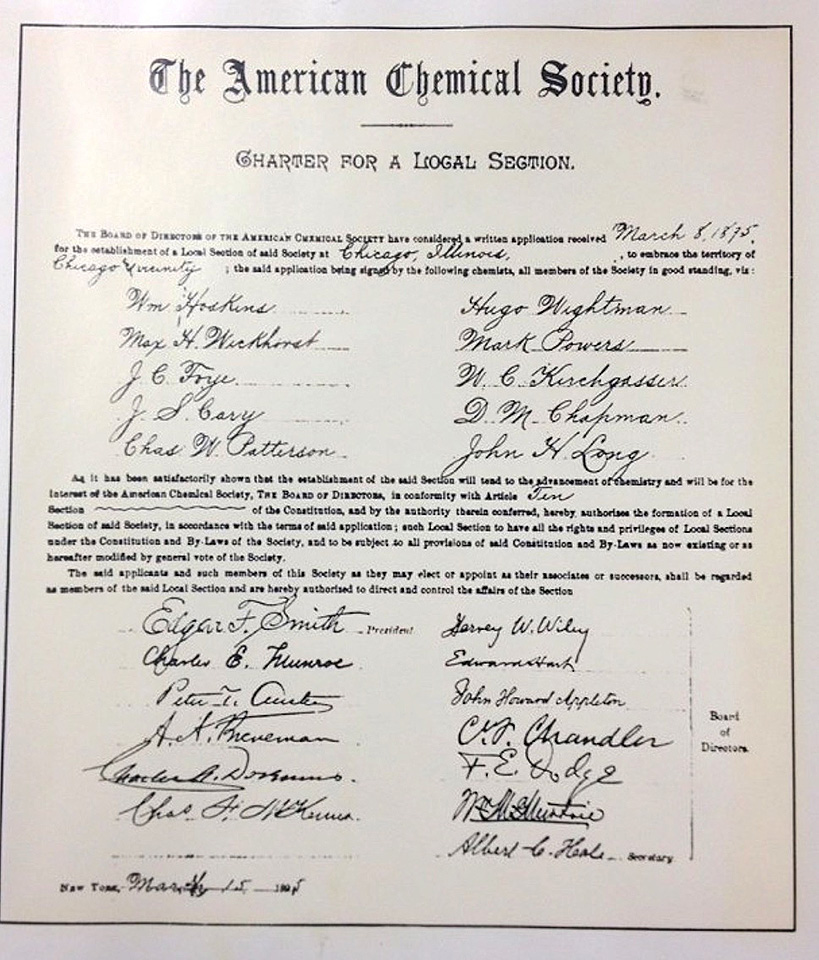 The American Chemical Society.
CHARTER FOR A LOCAL SECTION.
THE BOARD OF DIRECTORS OF THE AMERICAN CHEMICAL SOCIETY have considered a written application received March 8, 1895,
for the establishment of a Local Section of said Society at Chicago, Illinois, , to embrace the territory of
Chicago & vicinity ; the said application being signed by the following chemists, all members of the Society in good standing, viz:
Wm Hoskins Hugo Wightman
Max H. Wickhorst Mark Powers
J. C. Foye W. C. Kirchgasser
J. S. Cary D. M. Chapman
Chas W. Patterson John H. Long
As it has been satisfactorily shown that the establishment of the said Section will tend to the advancement of chemistry and will be for the
interest of the American Chemical Society, THE BOARD OF DIRECTORS, in conformity with Article Ten
Section of the Constitution, and by the authority therein conferred, hereby authorises the formation of a Local
Section of said Society, in accordance with the terms of said application; such Local Section to have all the rights and privileges of Local Sections
under the Constitution and By-Laws of the Society, and to be subject to all provisions of said Constitution and By-Laws as now existing or as
hereafter modified by general vote of the Society.
The said applicants and such members of this Society as they may elect or appoint as their associates or successors, shall be regarded
as members of the said Local Section and are hereby authorised to direct and control the affairs of the Section
Edgar F. Smith President Harvey W. Wiley
Charles E. Munroe Edward Hart
Peter T. Austen John Howard Appleton
C. F. Chandler
Charles A. Doremus. F. E. Dodge
Chas. F. McKenna. Wm McMurtrie
Albert C. Hale Secretary
Board
of
Directors.
New York, March 15 1895